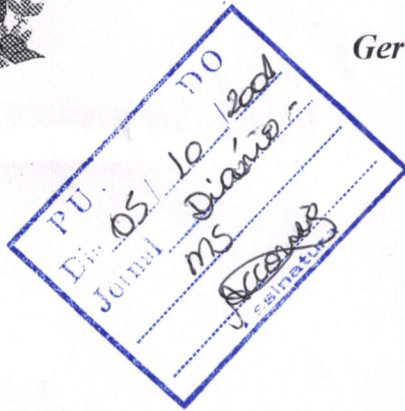 Ger
PU DO
Di 05/ 10 /2001
Jornal Diário-
MS
ssinatura